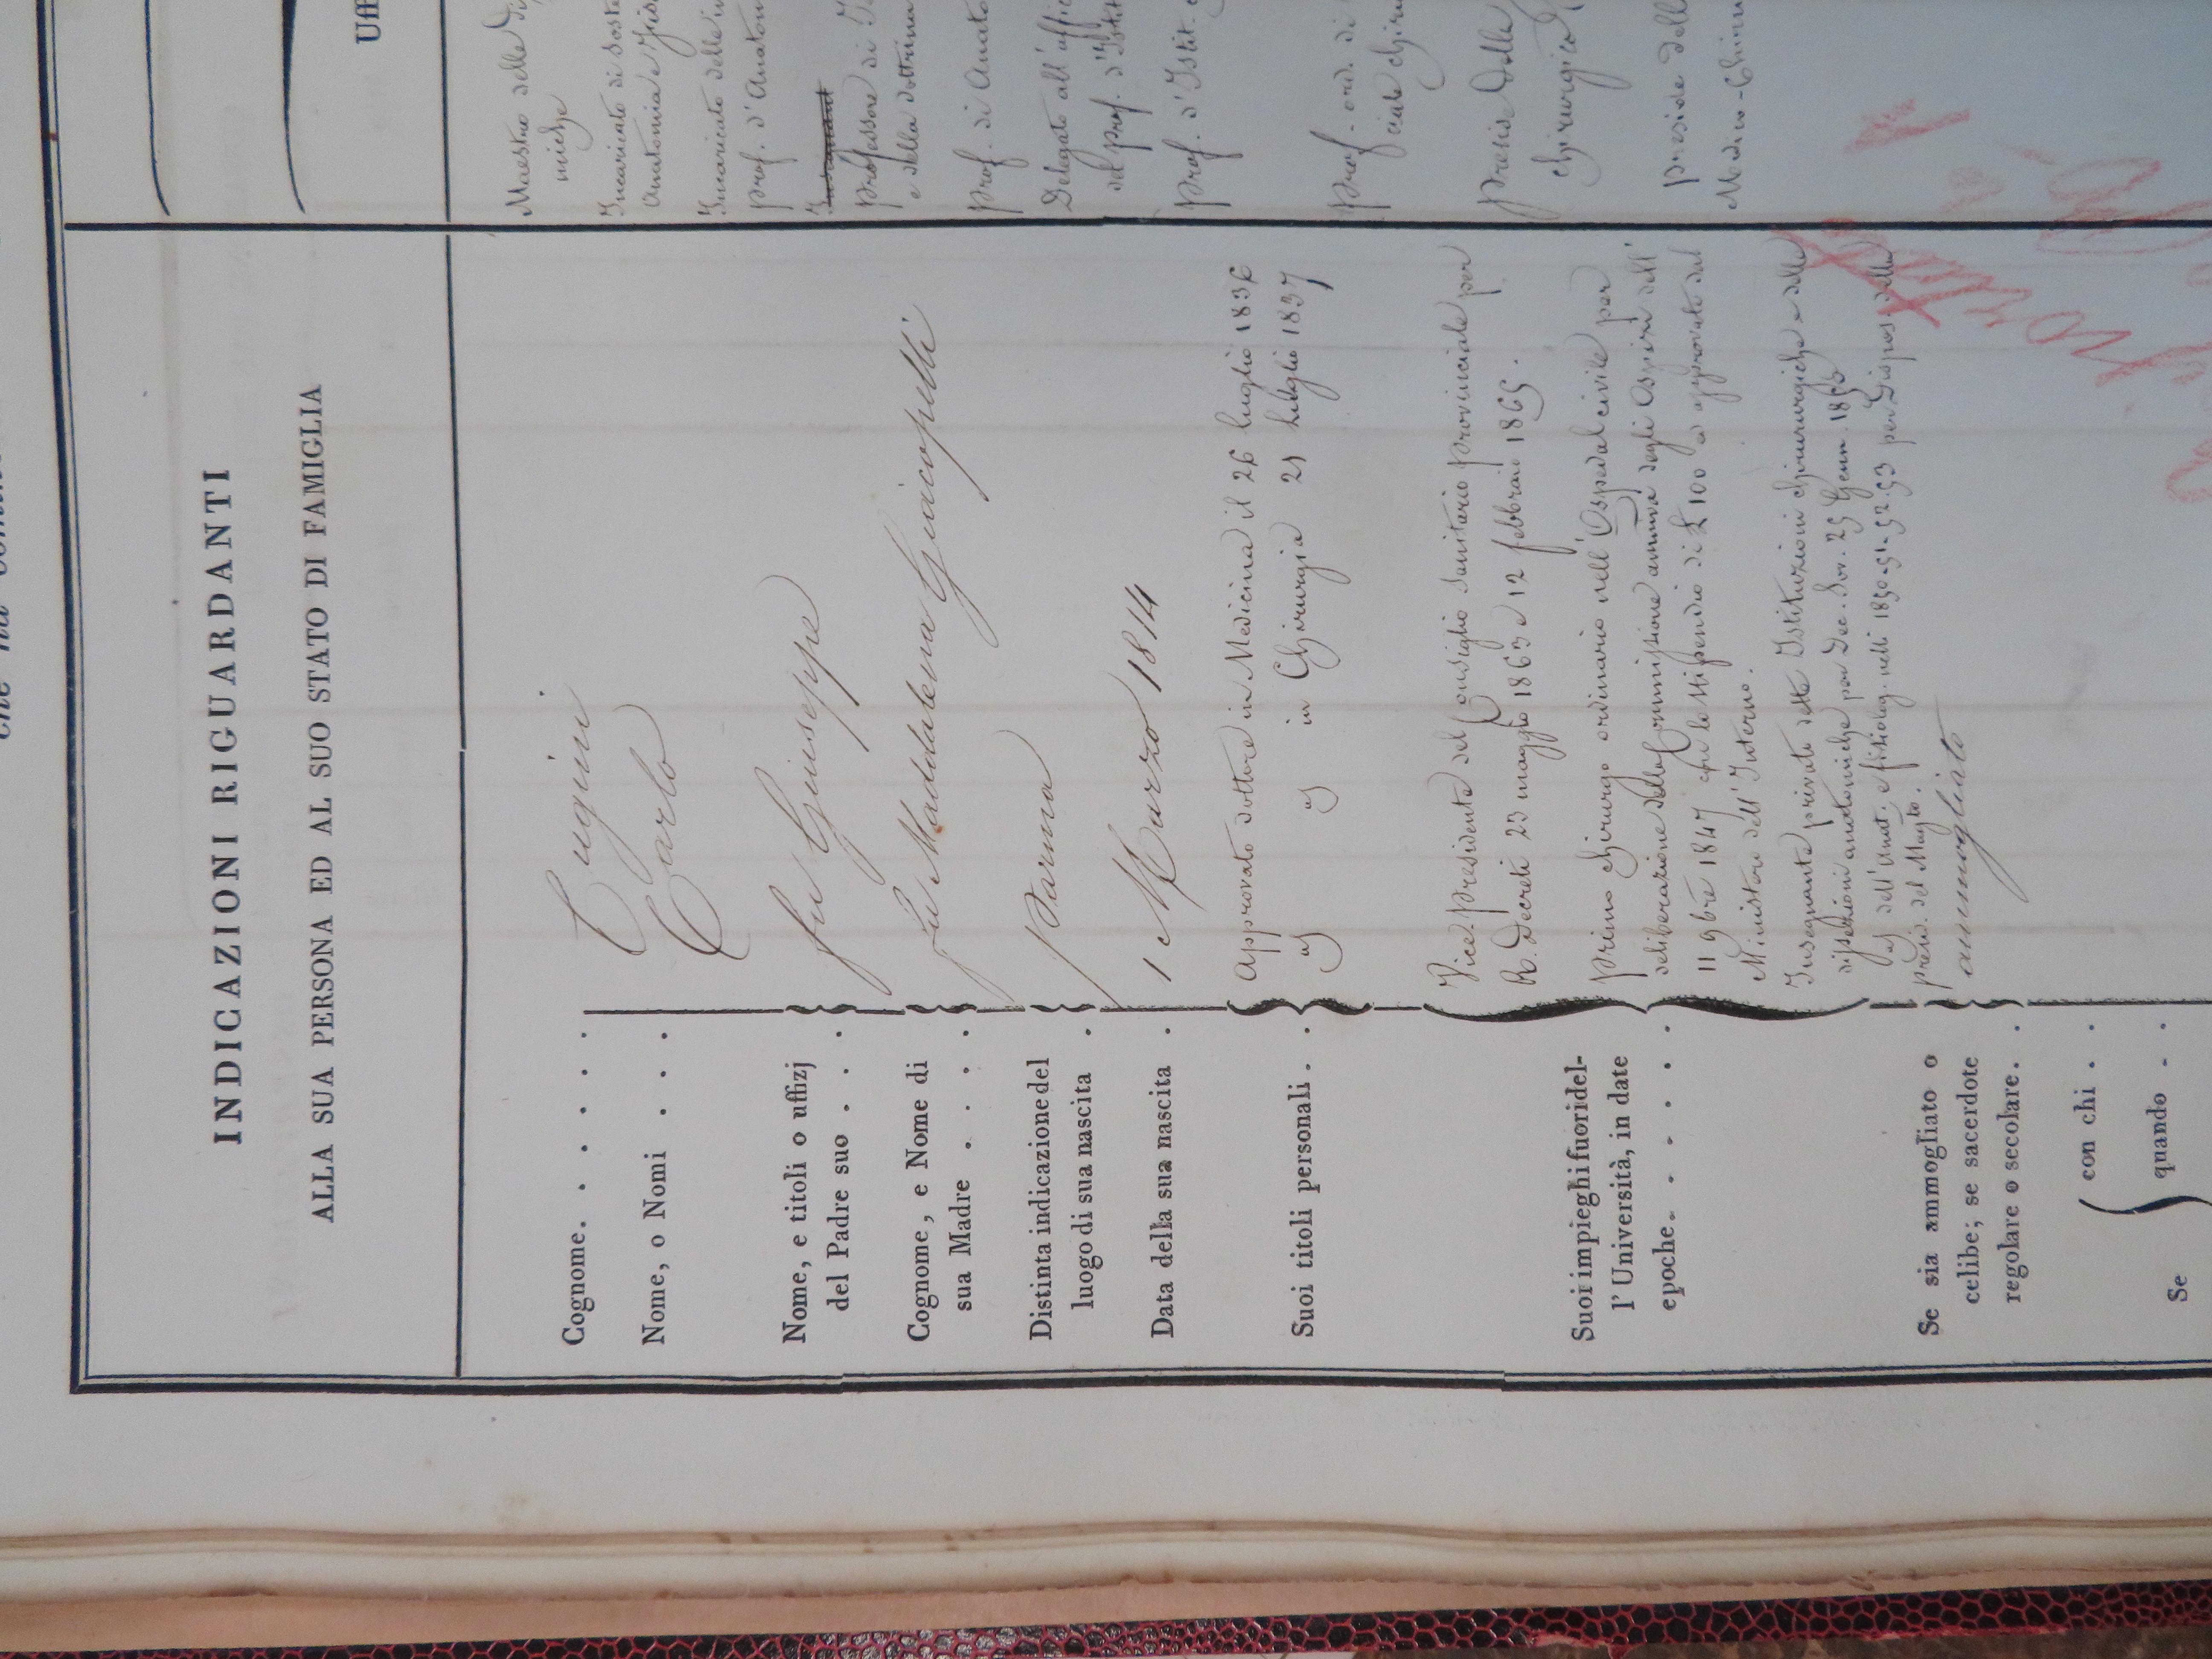 INDICAZIONI RIGUARDANTI
ALLA SUA PERSONA ED AL SUO STATO DI FAMIGLIA
Cognome. . . . . . Cugini
Nome, o Nomi . . . . Carlo
Nome, e titoli o uffizj
del Padre suo . . . fu Giuseppe
Cognome, e Nome di
sua Madre . . . . fu Maddalena Giacopelli
Distinta indicazione del
luogo di sua nascita . Parma
Data della sua nascita . 1 Marzo 1814
Suoi titoli personali. .
Approvato dottore in Medicina il 26 luglio 1836
id id in Chirurgia 21 luglio 1837
Suoi impieghi fuori del-
l'Università, in date
epoche. . . . . .
Vice presidente del Consiglio Sanitario provinciale per
R. Decreti 23 maggio 1863 e 12 febbraio 1865.
primo chirurgo ordinario nell'Ospedal civile per
deliberazione della Commissione degli Ospizi dell'
11 9bre 1847 con lo stipendio di £ 100 ed approvato dal
Ministero dell'Interno.
Insegnante privato delle Istituzioni chirurgiche e delle
dissezioni anatomiche per Dec. Sov. 25 Genn. 1850
id dell'Anat. e fisiolog. nelli 1850-51-52-53 per Dispos. della
presid. del Magto.
Se sia ammogliato o
celibe; se sacerdote
regolare o secolare. . ammogliato
Se { con chi . .
quando . .
Uff
Maestro delle
miche
Incaricato di
Anatomia e
Incaricato delle
prof. d'Anatom
Professore di
e della dottrina
prof. di Anato
Delegato all'uffic
del prof. d'Istit
prof. d'Istit.
prof. ord. di
ciale chiru
preside della
chirurgica
preside dell
Medico-Chiru